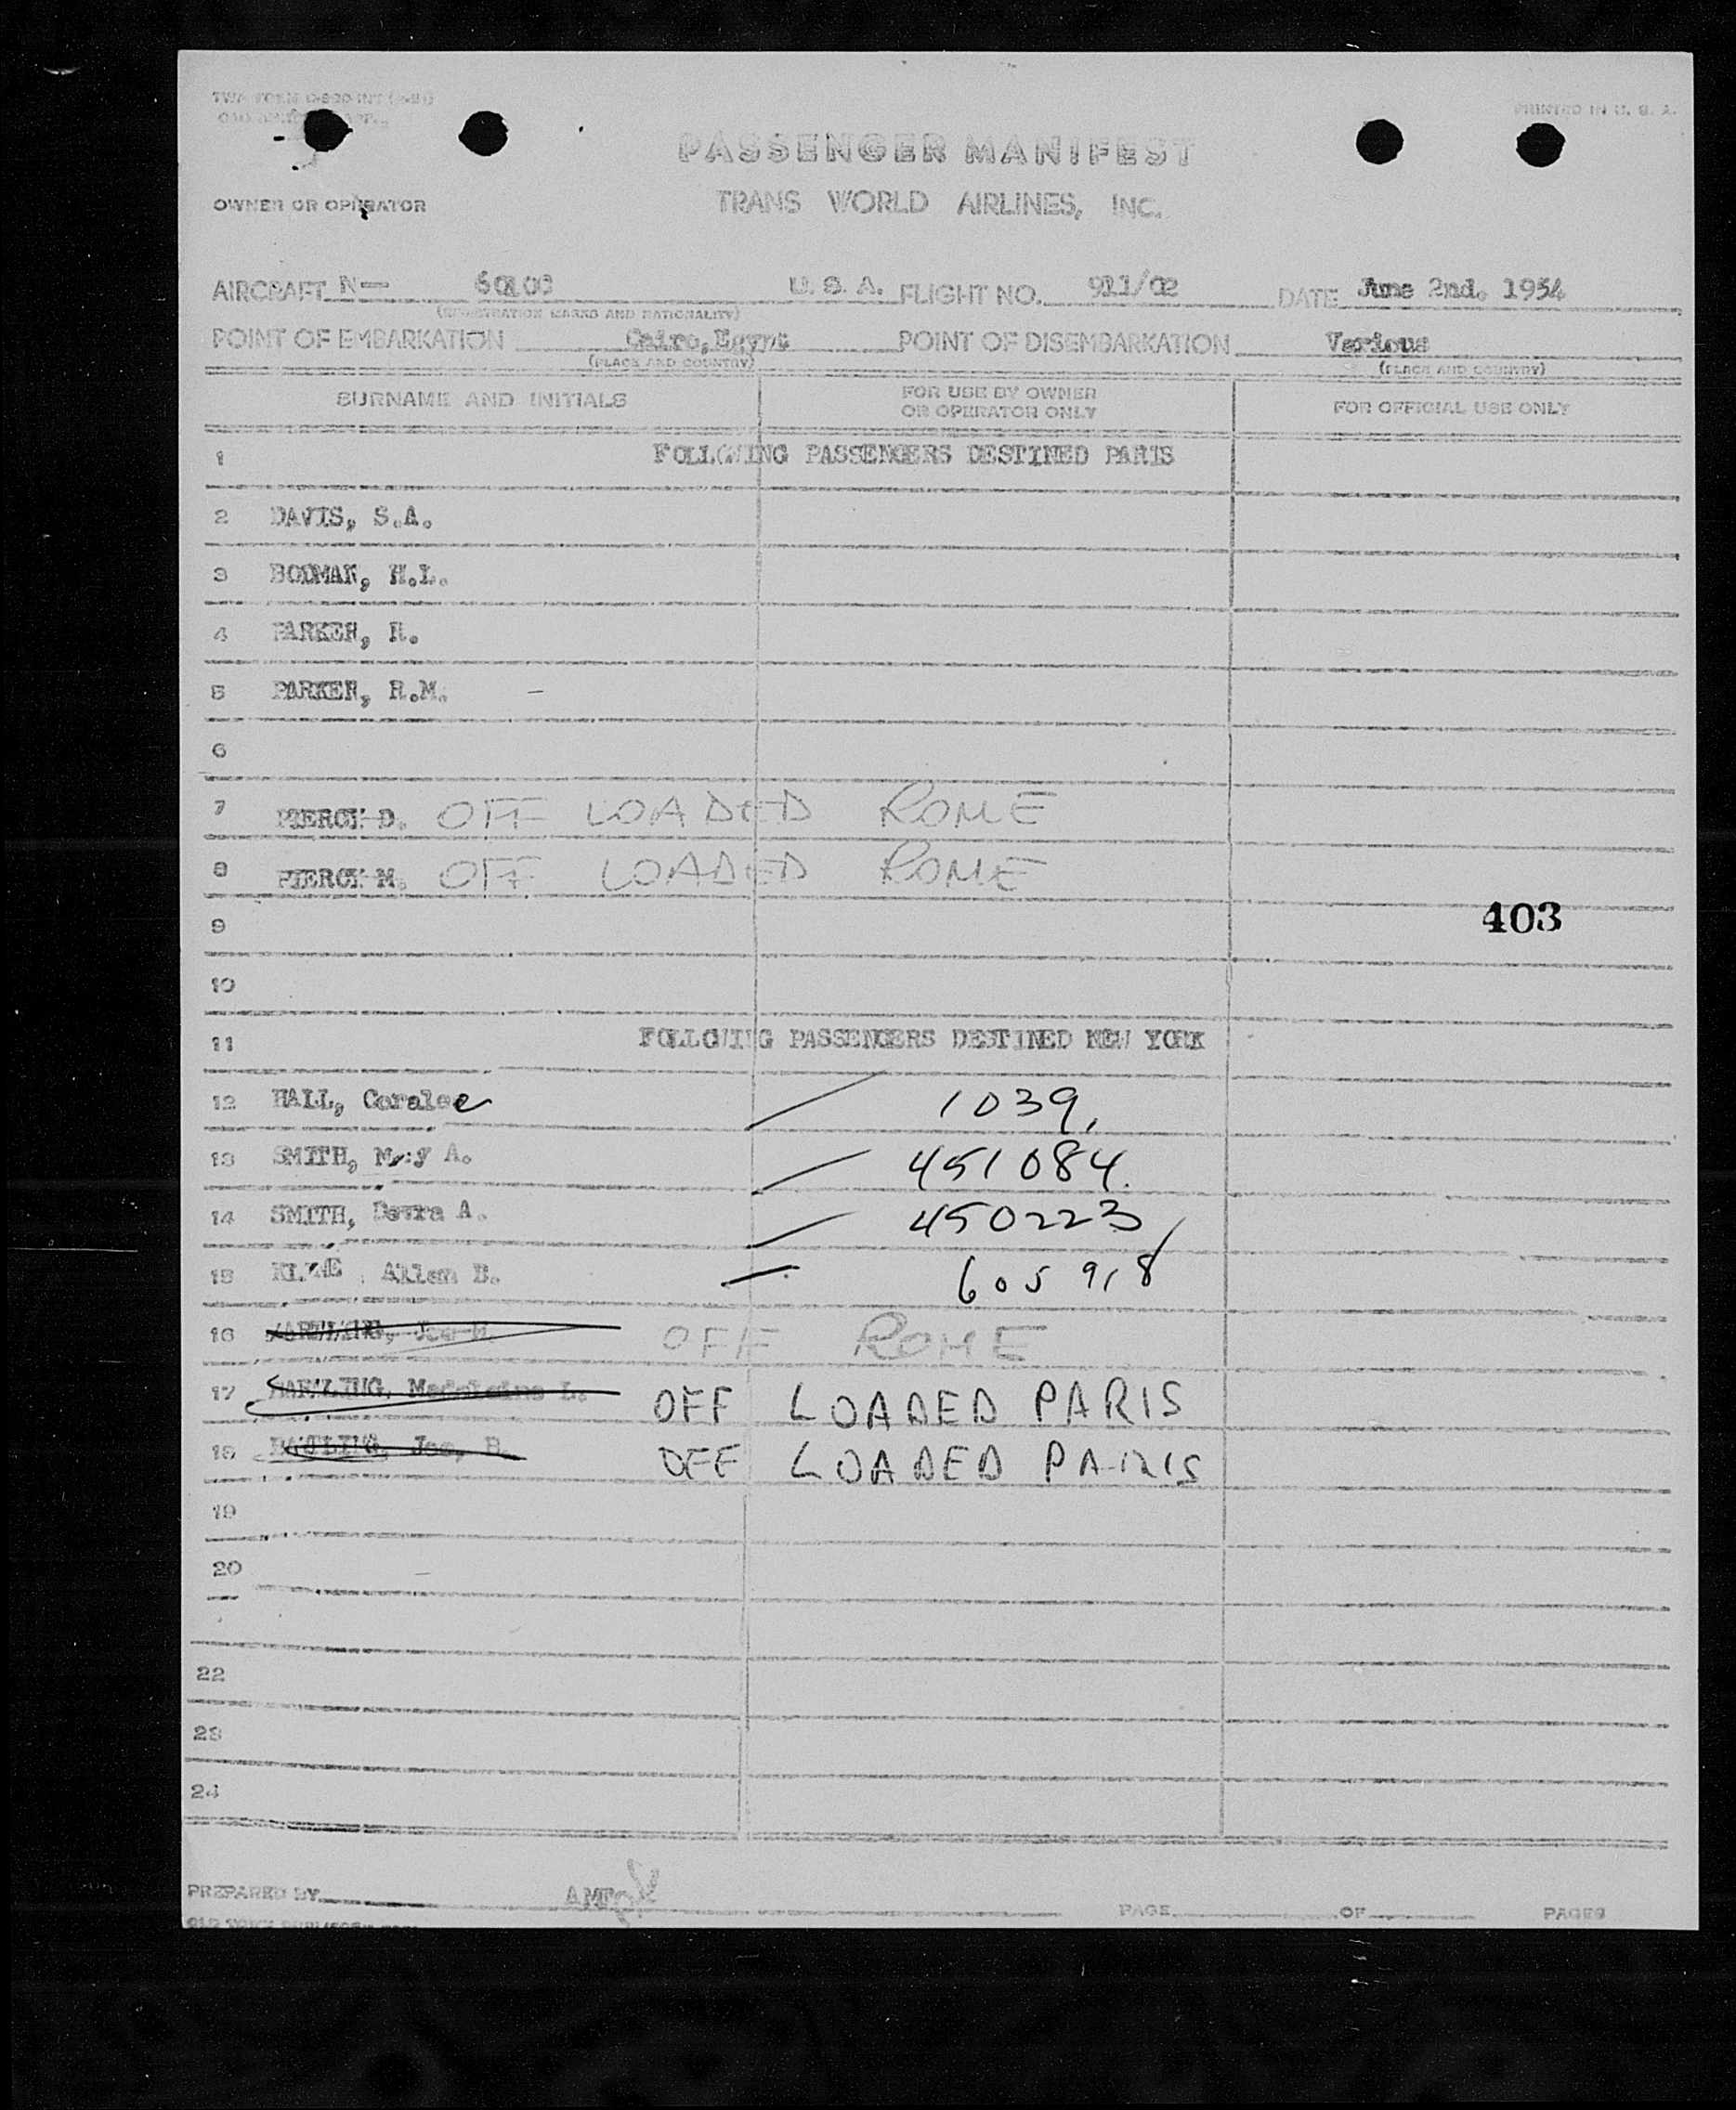 PRINTED IN U. S. A.
PASSENGER MANIFEST
OWNER OR OPERATOR TRANS WORLD AIRLINES, INC.
AIRCRAFT N— U. S. A. FLIGHT NO. 911/02 DATE June 2nd. 1954
(REGISTRATION MARKS AND NATIONALITY)
POINT OF EMBARKATION Cairo, Egypt POINT OF DISEMBARKATION Various
(PLACE AND COUNTRY) (PLACE AND COUNTRY)
SURNAME AND INITIALS FOR USE BY OWNER OR OPERATOR ONLY FOR OFFICIAL USE ONLY
1 FOLLOWING PASSENGERS DESTINED PARIS
2 DAVIS, S.A.
3 BODMAN, H.L.
4 PARKER, R.
5 PARKER, R.M. –
6
7 PIERCY D. OFF LOADED ROME
8 PIERCY M. OFF LOADED ROME
9 403
10
11 FOLLOWING PASSENGERS DESTINED NEW YORK
12 HALL, Coralee 1039,
13 SMITH, Mary A. 451084.
14 SMITH, A. 450223
15 Allan B. 605918
16 OFF ROME
17 OFF LOADED PARIS
18 OFF LOADED PARIS
19
20
22
23
24
PREPARED BY AMT PAGE OF PAGES